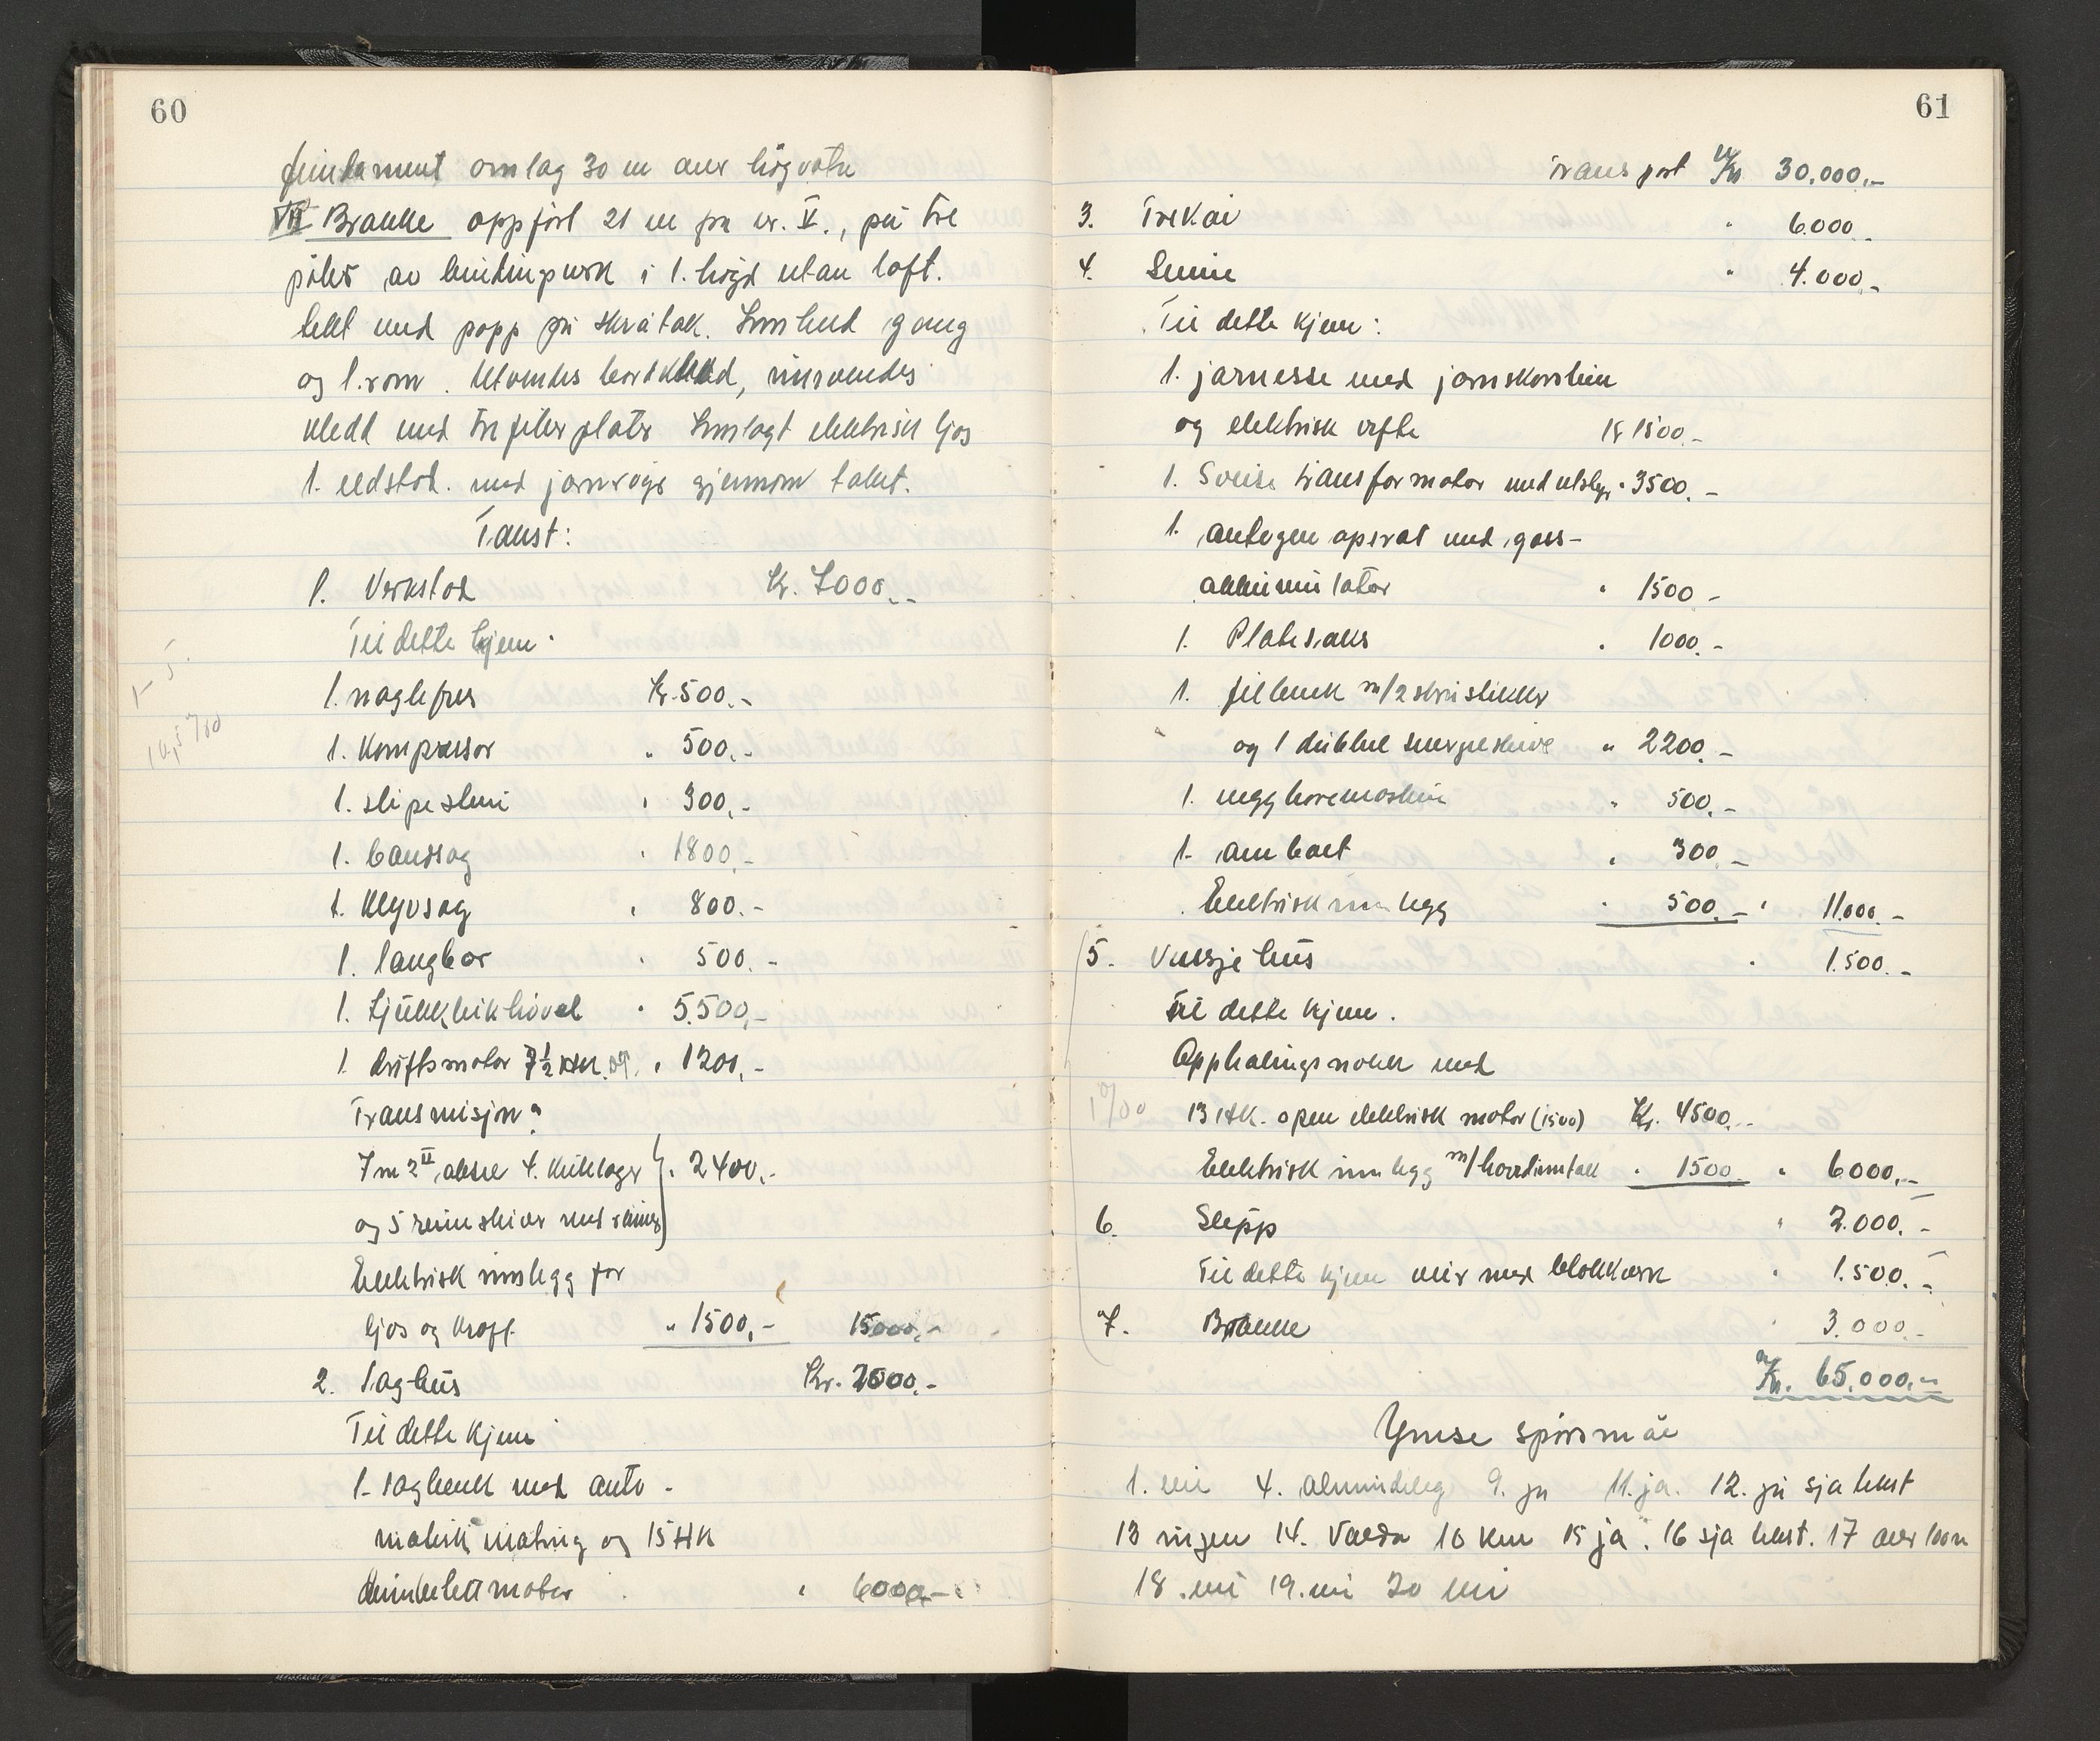 60
fundament omlag 30 m over högvatn
VII Brakke oppfört 21 m fra nr. V., på tre
påler av bindingverk i 1. högd utan loft.
tekt med papp på skråtak. Innhend gang
og 1. rom. Utvendes bordkledd, innvendes
kledd med trefiberplater Innlagt elektrisk ljos
1. eldstad. med jarnrøyr gjennom taket.
Takst:
1. Verkstad Kr. 7000.-
Til dette kjem:
1. naglefres Kr. 500.-
1. Kompressor " 500.-
1. slipestein " 300,-
1. bandsag " 1800.-
1. Klyvsag " 800.-
1. langbor " 500.-
1. tjukkleikhövel " 5.500,-
1 driftsmotor 7½ HK. og " 1200,-
Transmisjon:
7 m 2" aksel 4. kulelager " 2400.-
og 5 reimskiver med reimer
Elektrisk innlegg for
ljos og kraft " 1500,- 15000,-
2. Saghus Kr. 2500.-
Til dette kjem
1. sagbenk med auto-
matisk mating og 15 HK
dunderlettmotor " 6000,-
1-5.
10,5 ‰
61
Transport Kr 30.000.-
3. Trekai " 6.000.-
4. Smie " 4.000.-
Til dette kjem:
1. jarnesse med jarnskorstein
og elektrisk vifte Kr 1500.-
1. Sveise transformator med utstyr " 3500.-
1. autogen aparat med gass-
akkumulator " 1500 -
1. Platesaks " 1000.-
1. filbenk m/2 skrustikker
og 1 dubbel smergelskive " 2200.-
1. veggboremaskin " 500.-
1. ambolt " 300.-
Elektrisk innlegg " 500.- " 11.000.-
5. Vassjehus " 1.500.-
Til dette kjem.
Opphalingsmaskin med
13 HK. open elektrisk motor (1500) Kr. 4500.-
Elektrisk innlegg m/hovedinntak " 1500 " 6000.-
6. Slipp " 2.000.-
Til dette kjem meir med blokkvern " 1.500.-
7. Brakke " 3.000.-
Kr. 65.000.-
1 ‰
Ymse spörsmål
1. nei 4. almindeleg 9. ja 11. ja. 12. ja sjå tekst
13 ingen 14. Volda 10 km 15 ja. 16 sjå tekst. 17 over 100 m
18. nei 19. nei 20 nei